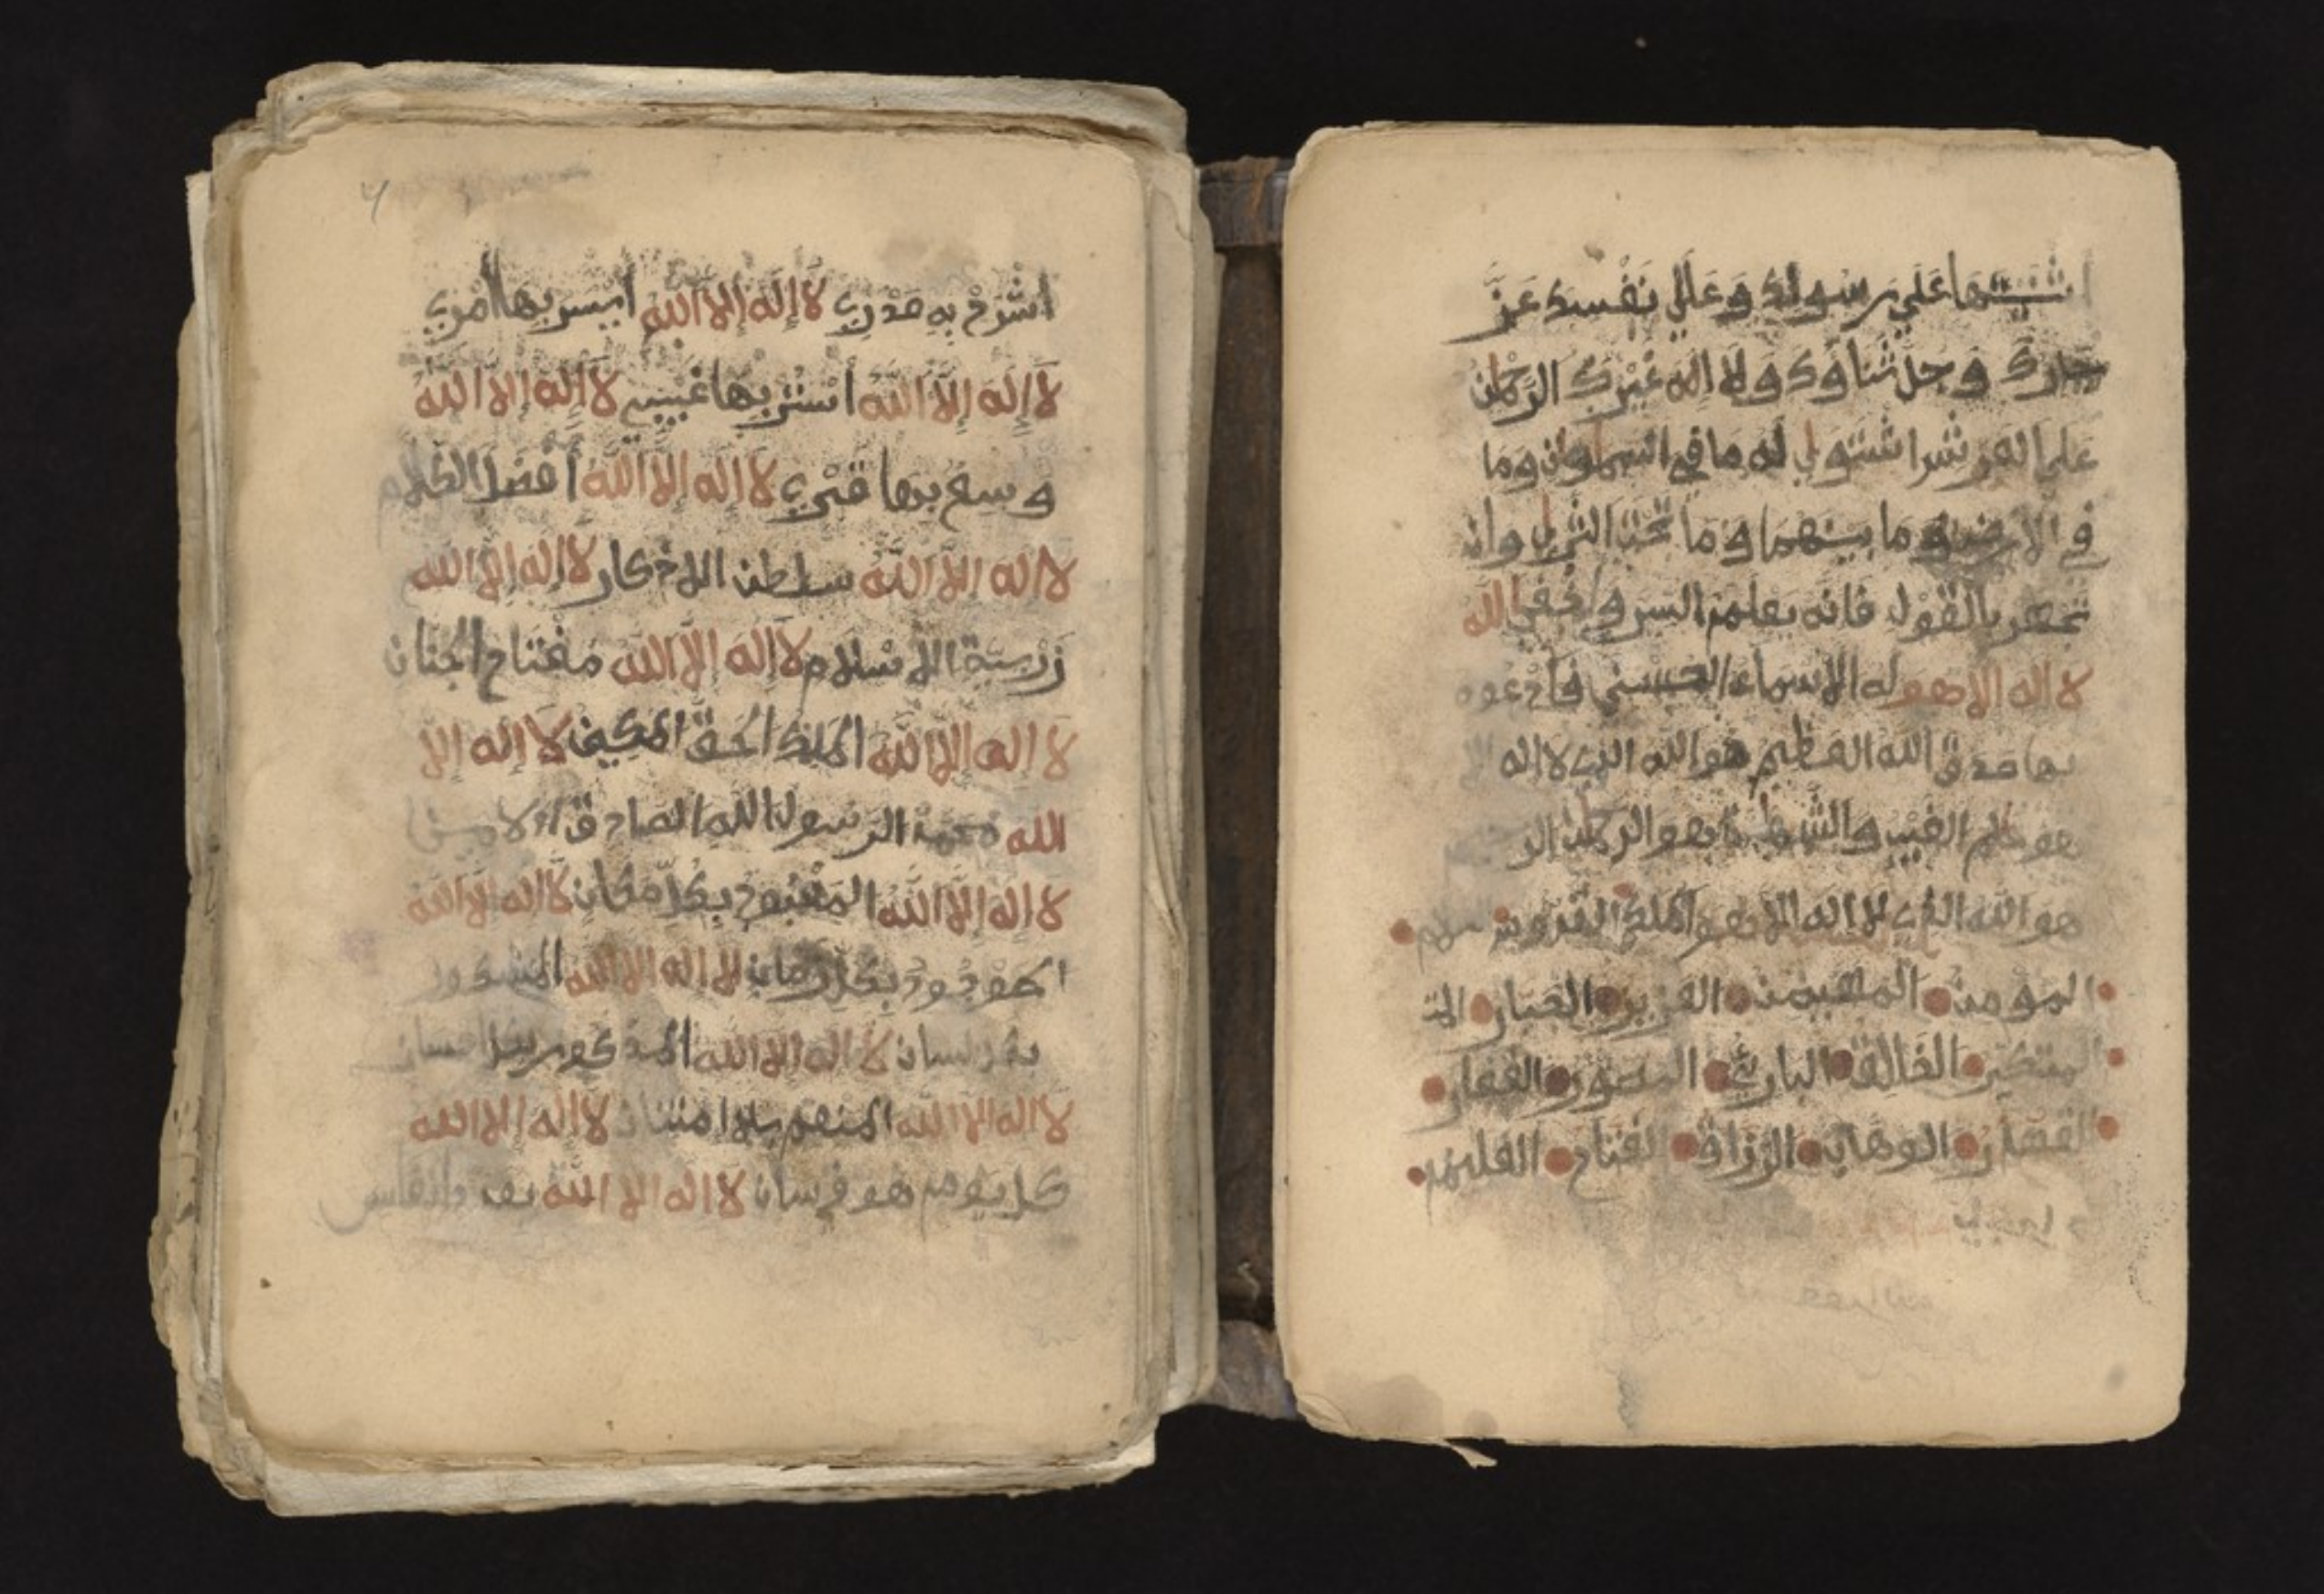 اثنيتها على رسولك وعلى نفسك عز
جارك وجل ثناؤك ولا اله غيرك الرحمان
على العرش استوى له ما في السماوات وما
في الارض وما بينهما وما تحت الثرى وان
تجهر بالقول فانه يعلم السر واخفى الله
لا اله الا هو له الاسماء الحسنى فادعوه
بها صدق الله العظيم هو الله الذي لا اله
هو علم الغيب والشهادة هو الرحمان الر
هو الله الذي لا إله الا هو الملك القدوس السلام
المؤمن المهيمن العزيز الجبار المتـ
المتكبر الخالق البارئ المصور الغفار
القهار الوهاب الرزاق الفتاح العليم
أشرح به صدري لا إله إلا الله أيسر بها أمري
لا إله إلا الله أستر بها غيبي لا إله إلا الله
وسع بها قبري لا إله إلا الله أفضل الكلام
لا اله الا الله سلطن الاذكار لا إله إلا الله
زينة الاسلام لا إله إلا الله مفتاح الجنان
لا إله إلا الله الملك الحق المبين لا إله إلا
الله محمد الرسول الله الصادق الامين
لا إله إلا الله المعبود بكل مكان لا إله إلا الله
الموجود بكل زمان لا إله إلا الله المشكور
بكل لسان لا اله الا الله المذكور بكل احسان
لا اله الا الله المنعم بلا امتنان لا إله إلا الله
كل يوم هو في شان لا اله الا الله بعدد انفاس